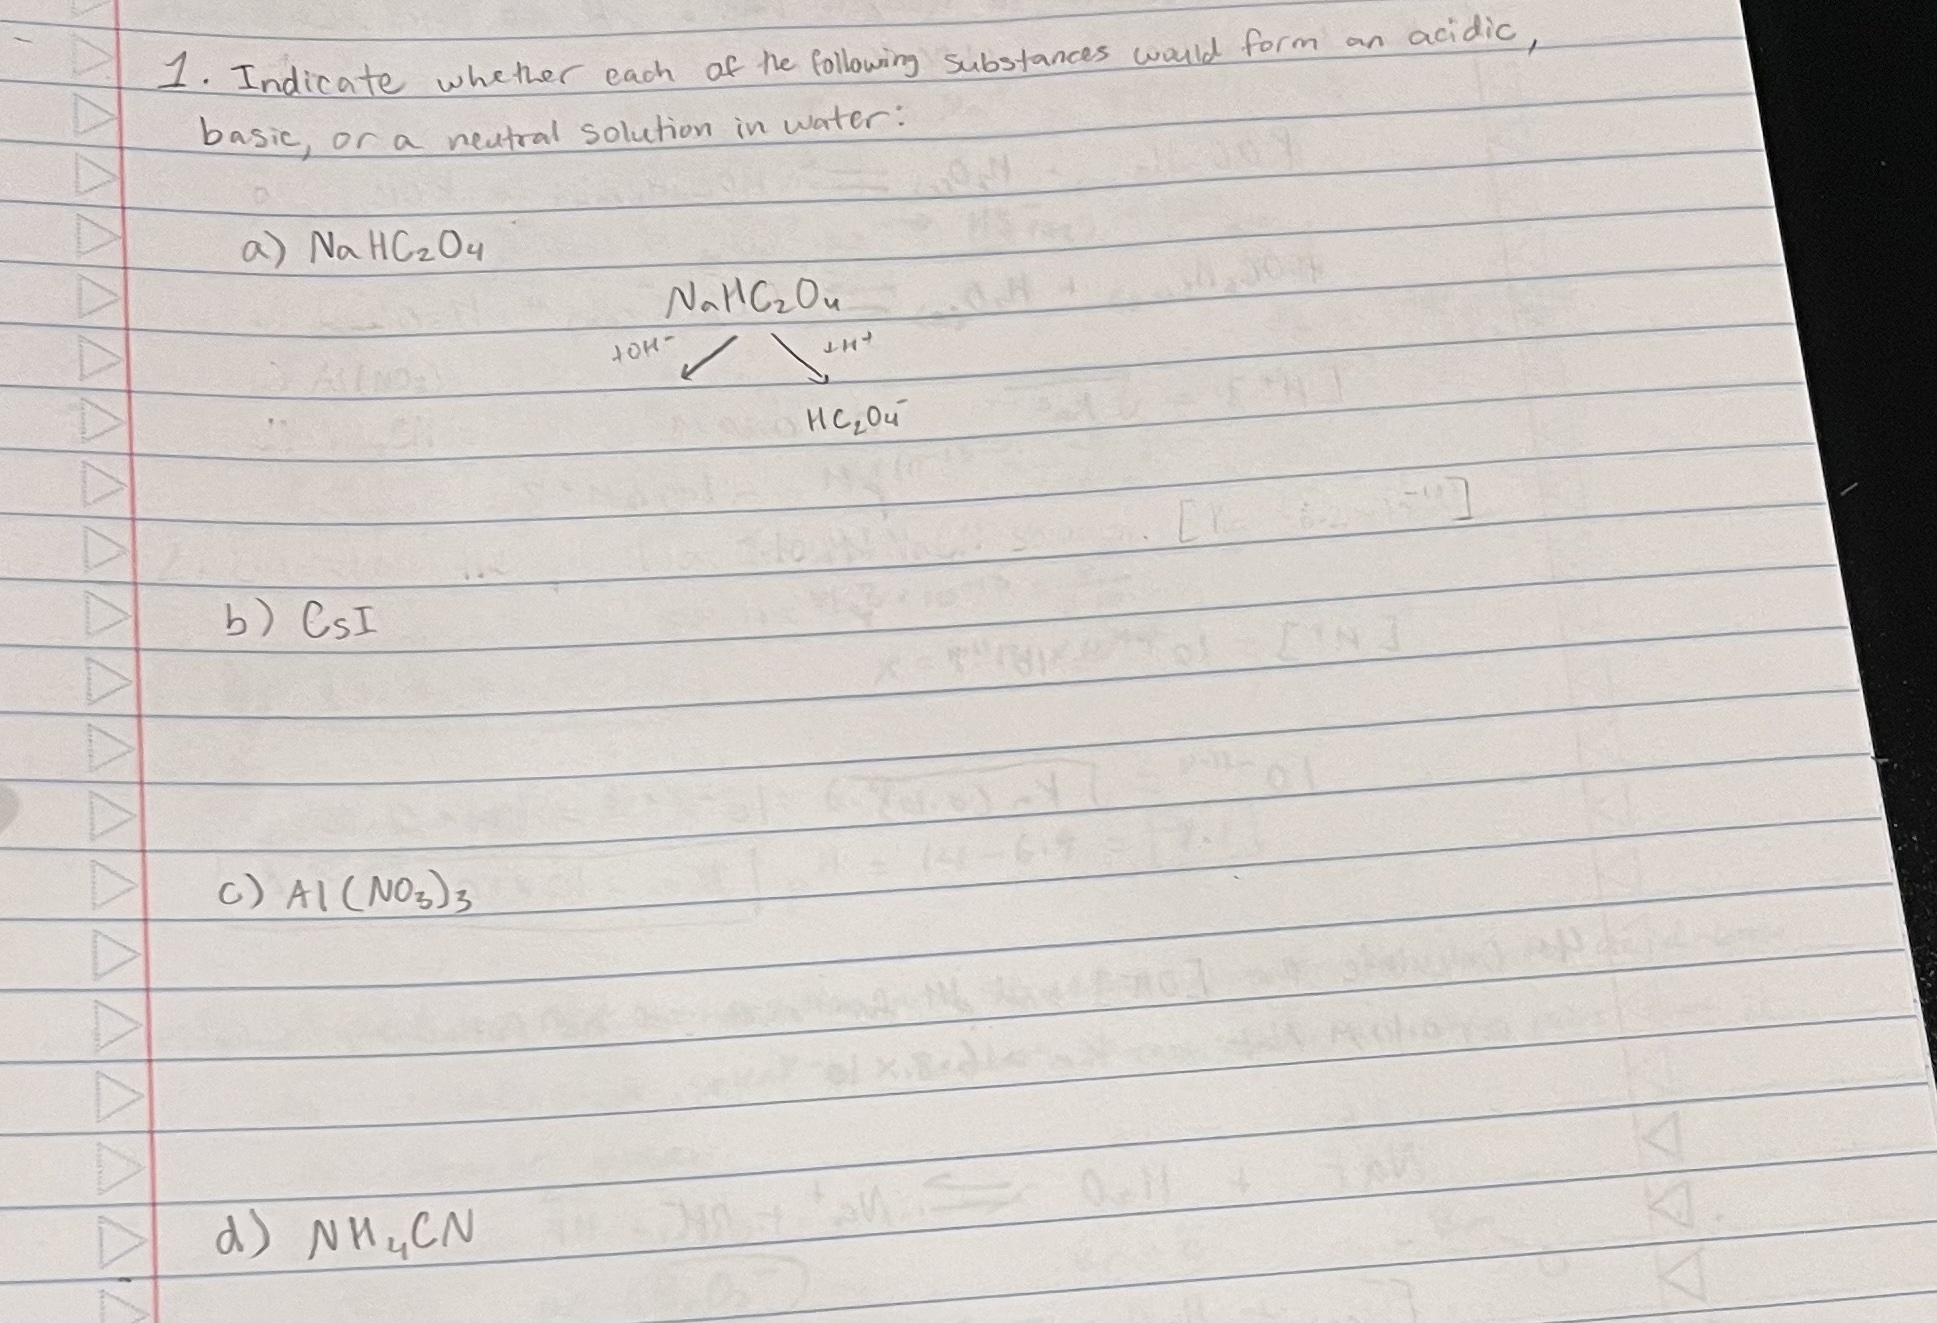 1. Indicate whether each of the following substances would form an acidic,
basic, or a neutral solution in water:
a) NaHC₂O₄
NaHC₂O₄
+OH⁻ +H⁺
HC₂O₄⁻
b) CsI
c) Al(NO₃)₃
d) NH₄CN